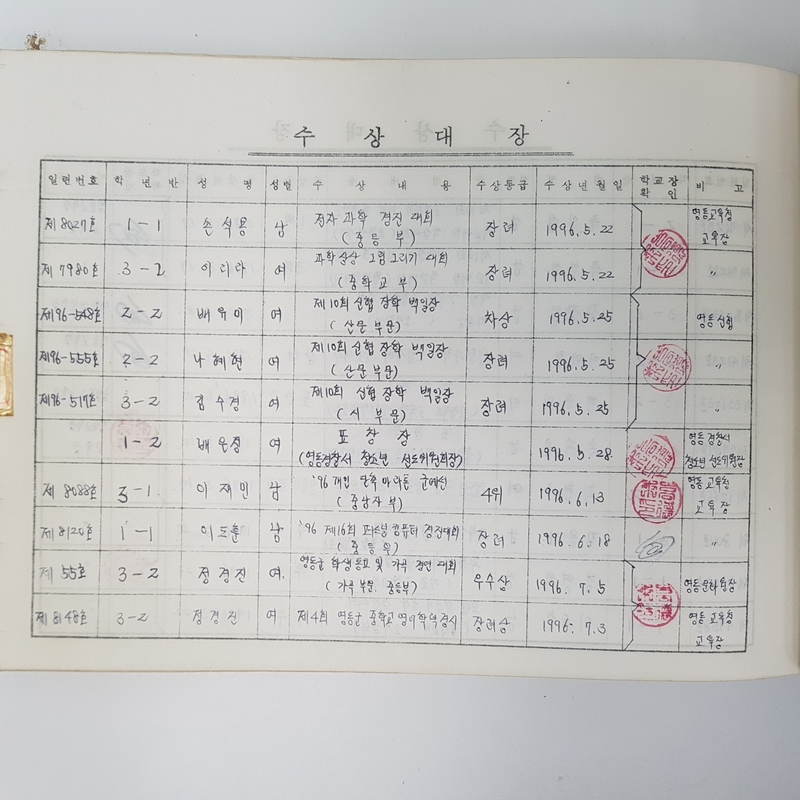 수 상 대 장
일련번호 학 년 반 성 명 성별 수 상 내 용 수상등급 수 상 년 월 일 학교장 확 인 비 고
제8027호 1-1 손석용 남 전자 과학 경진 대회 (중등부) 장려 1996.5.22 영동교육청 교육장
제7980호 3-2 이리라 여 과학상상 그림그리기 대회 (중학교부) 장려 1996.5.22 〃
제96-548호 2-2 배유미 여 제10회 신협 장학 백일장 (산문부문) 차상 1996.5.25 영동신협
제96-555호 2-2 나혜현 여 제10회 신협 장학 백일장 (산문부문) 장려 1996.5.25 〃
제96-517호 3-2 김수경 여 제10회 신협 장학 백일장 (시 부문) 장려 1996.5.25 〃
1-2 배은정 여 표창장 (영동경찰서 청소년 선도위원회장) 1996.5.28 영동경찰서 청소년 선도위원장
제8088호 3-1 이재민 남 '96 개인 단축 마라톤 군예선 (중남자부) 4위 1996.6.13 영동 교육청 교육장
제8120호 1-1 이도훈 남 '96 제16회 퍼스널 컴퓨터 경진대회 (중등부) 장려 1996.6.18 〃
제55호 3-2 정경진 여 영동군 학생 동요 및 가곡 경연 대회 (가곡부문. 중등부) 우수상 1996.7.5 영동문화원장
제8148호 3-2 정경진 여 제4회 영동군 중학교 영어학력경시 장려상 1996.7.3 영동 교육청 교육장